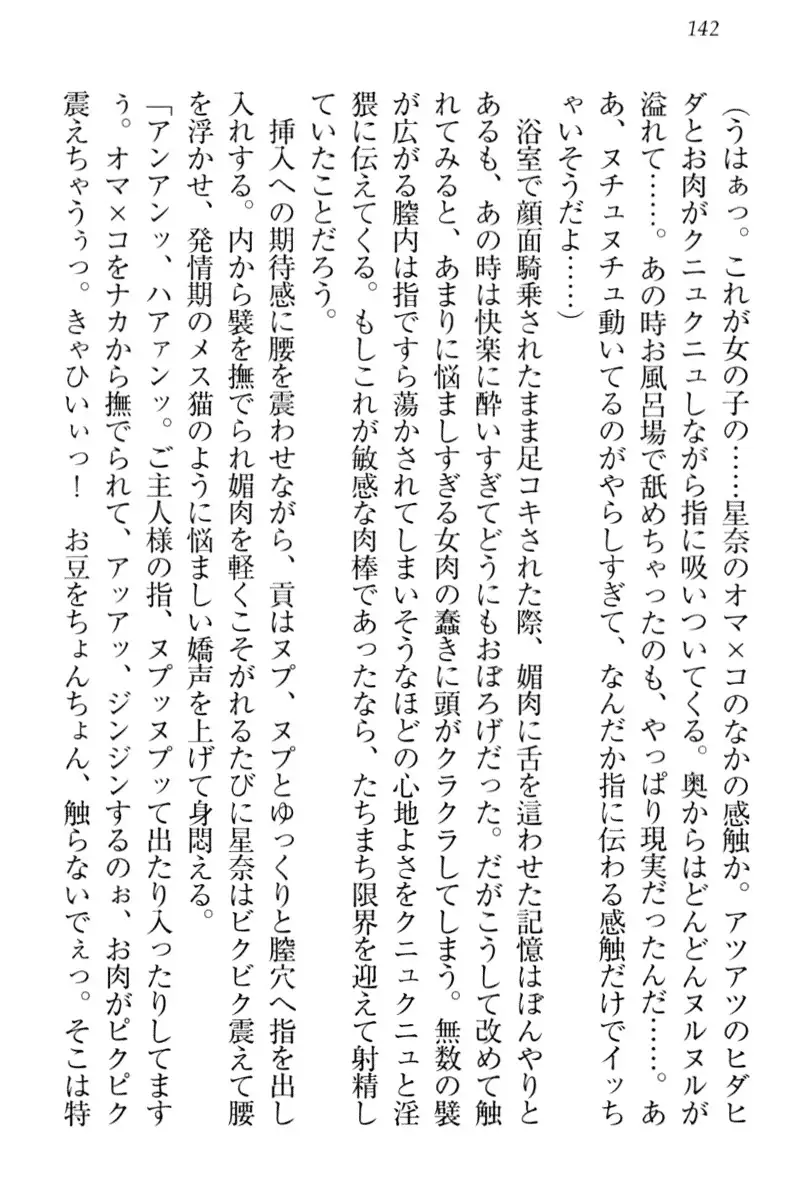 142
(うはぁっ。これが女の子の……星奈のオマ×コのなかの感触か。アツアツのヒダヒ
ダとお肉がクニュクニュしながら指に吸いついてくる。奥からはどんどんヌルヌルが
溢れて……。あの時お風呂場で舐めちゃったのも、やっぱり現実だったんだ……。あ
あ、ヌチュヌチュ動いてるのがやらしすぎて、なんだか指に伝わる感触だけでイッち
ゃいそうだよ……)
浴室で顔面騎乗されたまま足コキされた際、媚肉に舌を這わせた記憶はぼんやりと
あるも、あの時は快楽に酔いすぎてどうにもおぼろげだった。だがこうして改めて触
れてみると、あまりに悩ましすぎる女肉の蠢きに頭がクラクラしてしまう。無数の襞
が広がる膣内は指ですら蕩かされてしまいそうなほどの心地よさをクニュクニュと淫
猥に伝えてくる。もしこれが敏感な肉棒であったなら、たちまち限界を迎えて射精し
ていたことだろう。
挿入への期待感に腰を震わせながら、貢はヌプ、ヌプとゆっくりと膣穴へ指を出し
入れする。内から襞を撫でられ媚肉を軽くこそがれるたびに星奈はビクビク震えて腰
を浮かせ、発情期のメス猫のように悩ましい嬌声を上げて身悶える。
「アンアンッ、ハアァンッ。ご主人様の指、ヌプッヌプッて出たり入ったりしてます
ぅ。オマ×コをナカから撫でられて、アッアッ、ジンジンするのぉ、お肉がピクピク
震えちゃうぅっ。きゃひいぃっ！　お豆をちょんちょん、触らないでぇっ。そこは特